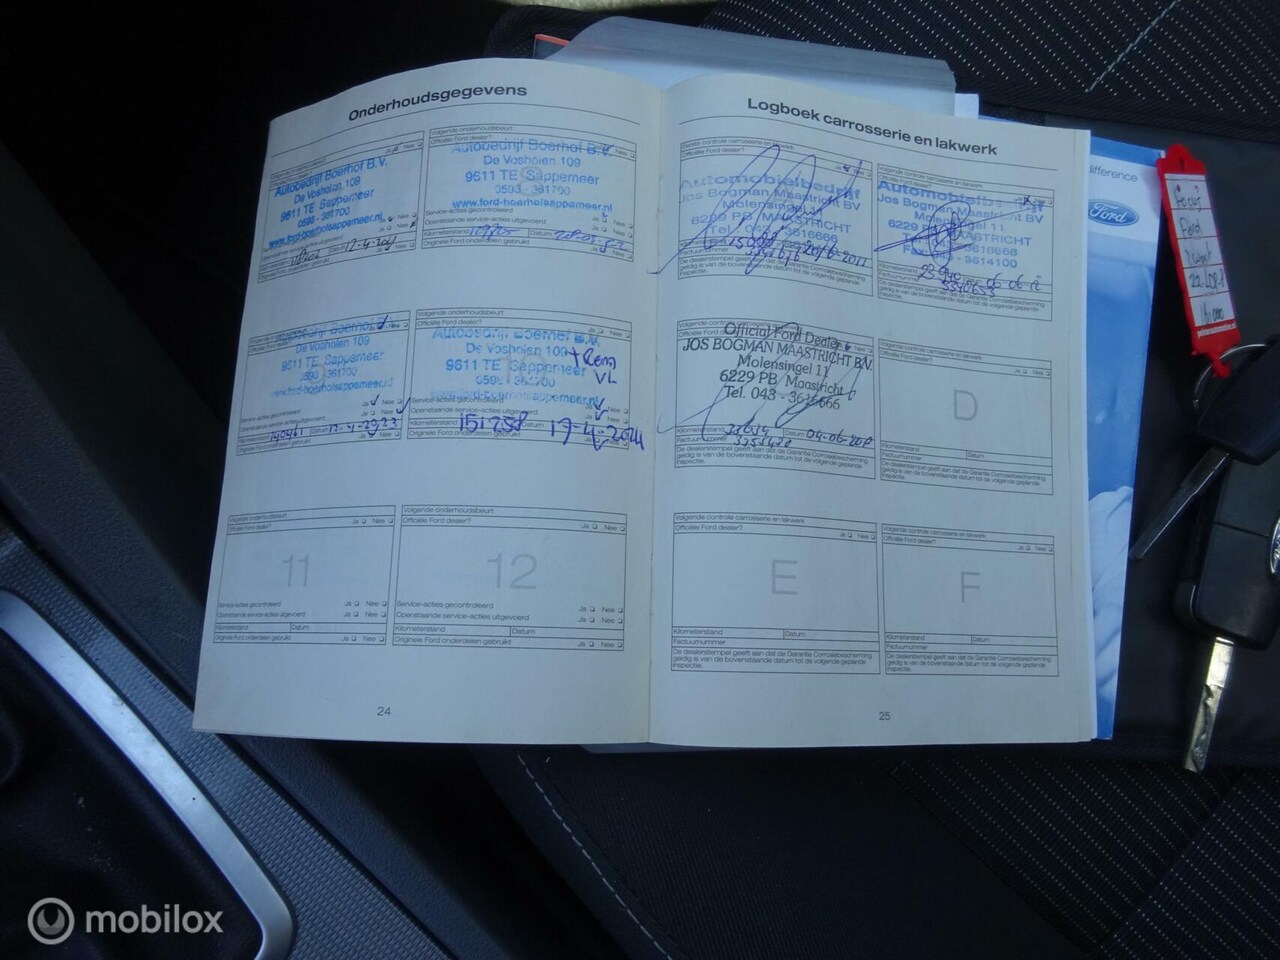 Onderhoudsgegevens
Autobedrijf Boerhof B.V.
De Vosholen 109
9611 TE Sappemeer
0598 - 361700
www.ford-boerhofsappemeer.nl
Datum
Originele Ford onderdelen gebruikt
Volgende onderhoudsbeurt
Officiële Ford dealer? Ja Nee
Autobedrijf Boerhof B.V.
De Vosholen 109
9611 TE Sappemeer
0598 - 361700
www.ford-boerhofsappemeer.nl
Service-acties gecontroleerd
Openstaande service-acties uitgevoerd Ja Nee
Kilometerstand Datum
Originele Ford onderdelen gebruikt
De Vosholen 109
9611 TE Sappemeer
0598 - 361700
www.ford-boerhofsappemeer.nl
Service-acties gecontroleerd Ja Nee
Kilometerstand Datum
Originele Ford onderdelen gebruikt
Volgende onderhoudsbeurt
Officiële Ford dealer? Ja Nee
De Vosholen 109
9611 TE Sappemeer
0598 - 361700
+ Rem
VL
Service-acties gecontroleerd
Openstaande service-acties uitgevoerd
Kilometerstand 151258 Datum 17-4-2024
Originele Ford onderdelen gebruikt
Volgende onderhoudsbeurt
Officiële Ford dealer? Ja Nee
11
Service-acties gecontroleerd Ja Nee
Openstaande service-acties uitgevoerd Ja Nee
Kilometerstand Datum
Originele Ford onderdelen gebruikt Ja Nee
Volgende onderhoudsbeurt
Officiële Ford dealer? Ja Nee
12
Service-acties gecontroleerd Ja Nee
Openstaande service-acties uitgevoerd Ja Nee
Kilometerstand Datum
Originele Ford onderdelen gebruikt Ja Nee
24
Logboek carrosserie en lakwerk
Eerste controle carrosserie en lakwerk
Officiële Ford dealer?
Automobielbedrijf
Jos Bogman Maastricht BV
Molensingel 11
6229 PB MAASTRICHT
Tel. 043 - 3616666
20/6-2011
De dealerstempel geeft aan dat de Garantie Corrosiebescherming
geldig is van de bovenstaande datum tot de volgende geplande
inspectie.
Volgende controle carrosserie en lakwerk
Jos Bogman Maastricht BV
Molensingel 11
6229 PB MAASTRICHT
Fax 043 - 3614100
06-06-12
De dealerstempel geeft aan dat de Garantie Corrosiebescherming
geldig is van de bovenstaande datum tot de volgende geplande
inspectie.
Volgende controle carrosserie en lakwerk
Official Ford Dealer
JOS BOGMAN MAASTRICHT B.V.
Molensingel 11
6229 PB Maastricht
Tel. 043 - 3616666
Kilometerstand Datum
Factuurnummer
De dealerstempel geeft aan dat de Garantie Corrosiebescherming
geldig is van de bovenstaande datum tot de volgende geplande
inspectie.
Volgende controle carrosserie en lakwerk
Officiële Ford dealer? Ja Nee
D
Kilometerstand Datum
Factuurnummer
De dealerstempel geeft aan dat de Garantie Corrosiebescherming
geldig is van de bovenstaande datum tot de volgende geplande
inspectie.
Volgende controle carrosserie en lakwerk
Officiële Ford dealer? Ja Nee
E
Kilometerstand Datum
Factuurnummer
De dealerstempel geeft aan dat de Garantie Corrosiebescherming
geldig is van de bovenstaande datum tot de volgende geplande
inspectie.
Volgende controle carrosserie en lakwerk
Officiële Ford dealer? Ja Nee
F
Kilometerstand Datum
Factuurnummer
De dealerstempel geeft aan dat de Garantie Corrosiebescherming
geldig is van de bovenstaande datum tot de volgende geplande
inspectie.
25
difference
Ford
Ford
mobilox